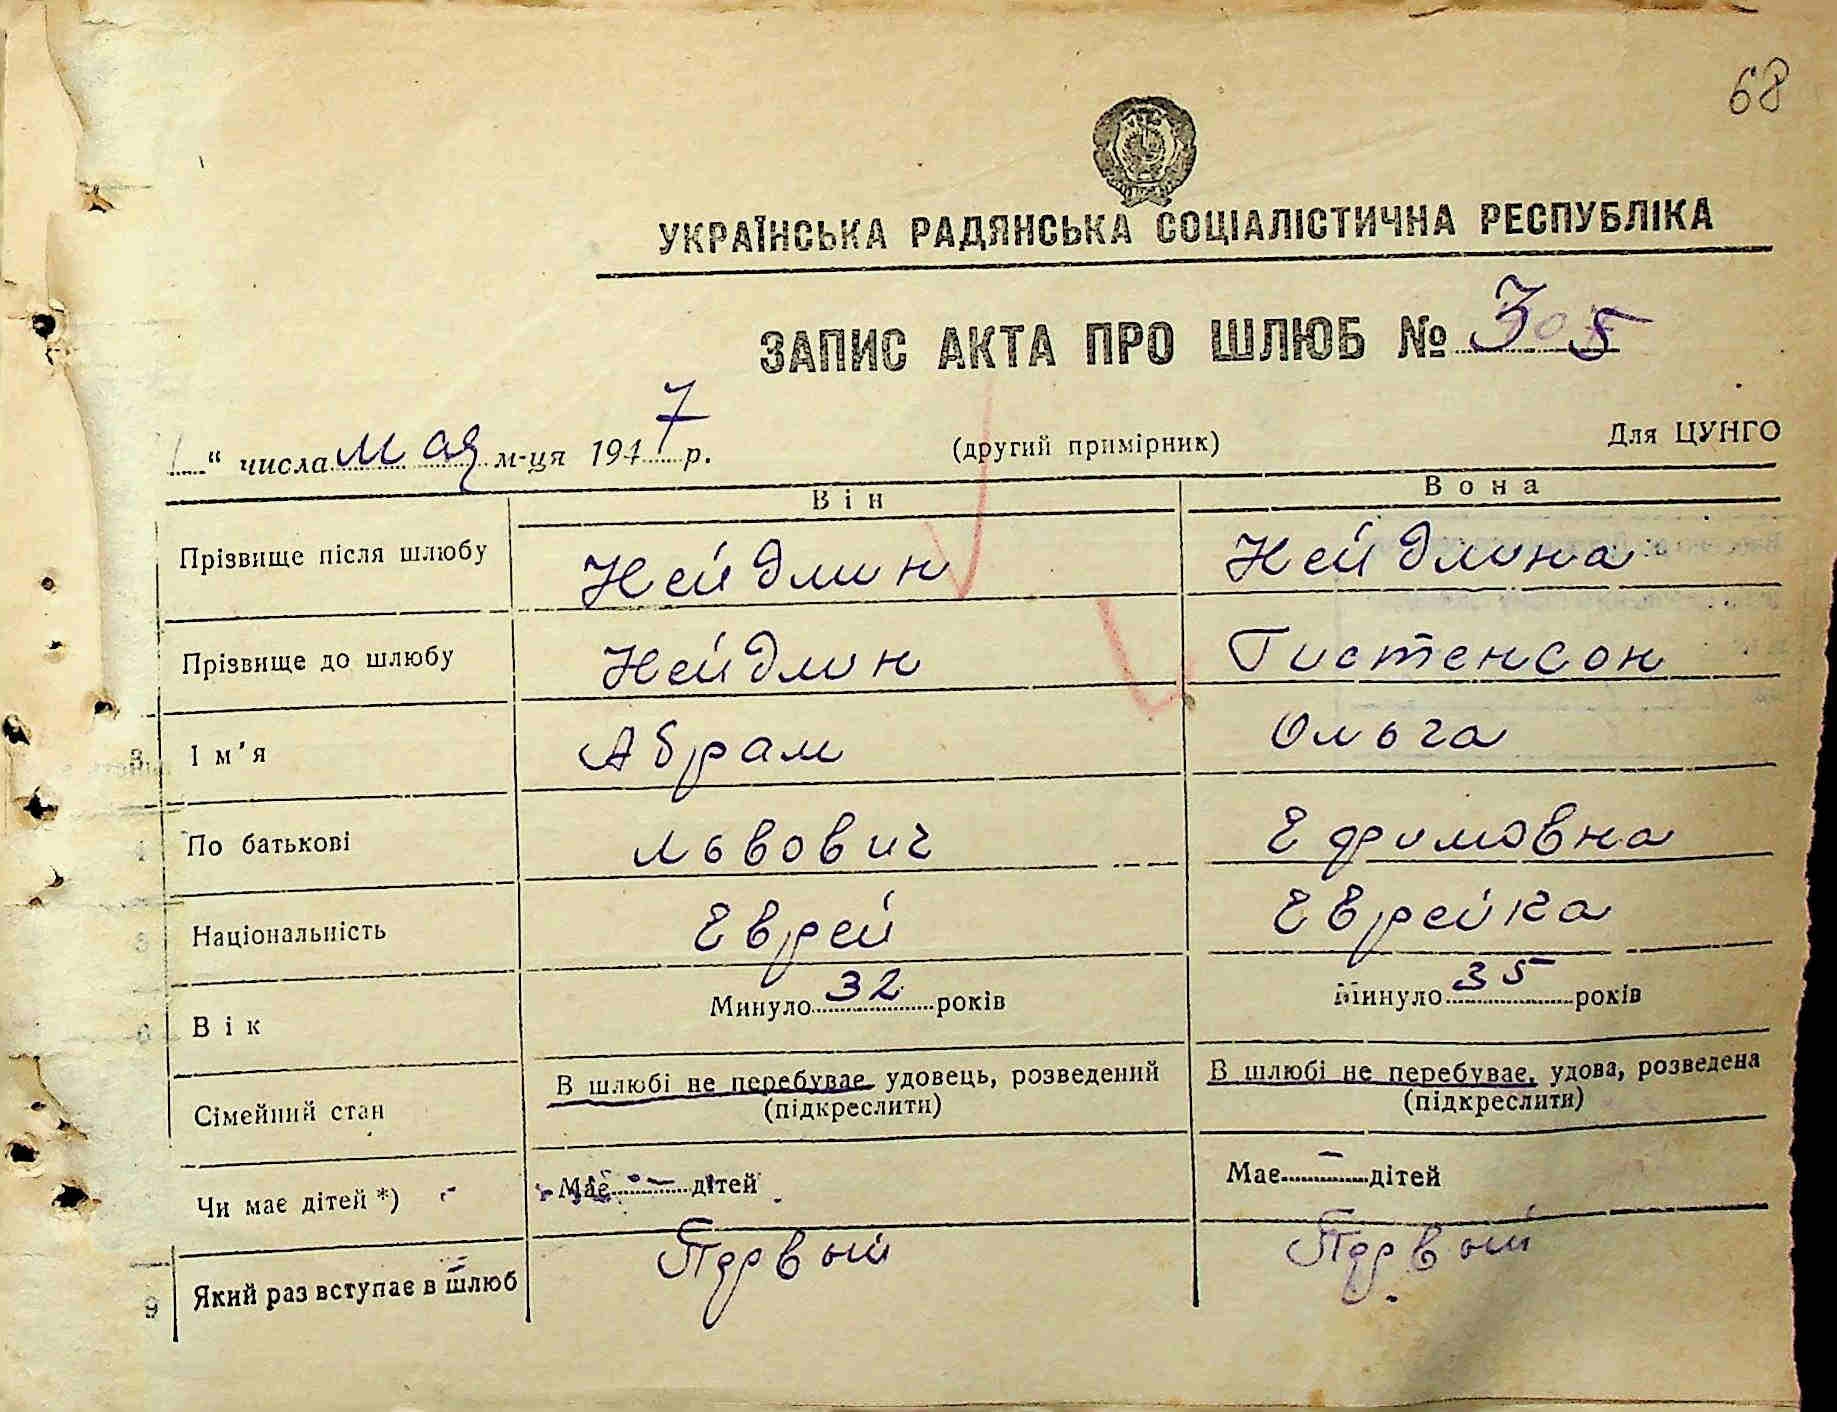 68
УКРАЇНСЬКА РАДЯНСЬКА СОЦІАЛІСТИЧНА РЕСПУБЛІКА
ЗАПИС АКТА ПРО ШЛЮБ № 305
“ числа мая м-ця 1947 р. (другий примірник) Для ЦУНГО
Він Вона
Прізвище після шлюбу Нейдлин Нейдлина
Прізвище до шлюбу Нейдлин Гистенсон
3 Ім’я Абрам Ольга
4 По батькові Львович Ефимовна
5 Національність Еврей Еврейка
6 Вік Минуло 32 років Минуло 35 років
Сімейний стан В шлюбі не перебуває, удовець, розведений В шлюбі не перебуває, удова, розведена
(підкреслити) (підкреслити)
Чи має дітей *) Має - дітей Має - дітей
9 Який раз вступає в шлюб Первый Первый